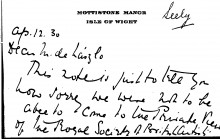 MOTTISTONE MANOR
ISLE OF WIGHT
Seely
Ap. 12. 30
Dear Mr de László
This note is just to tell you
how sorry we were not to be
able to come to the Private View
of the Royal Society of Portraits